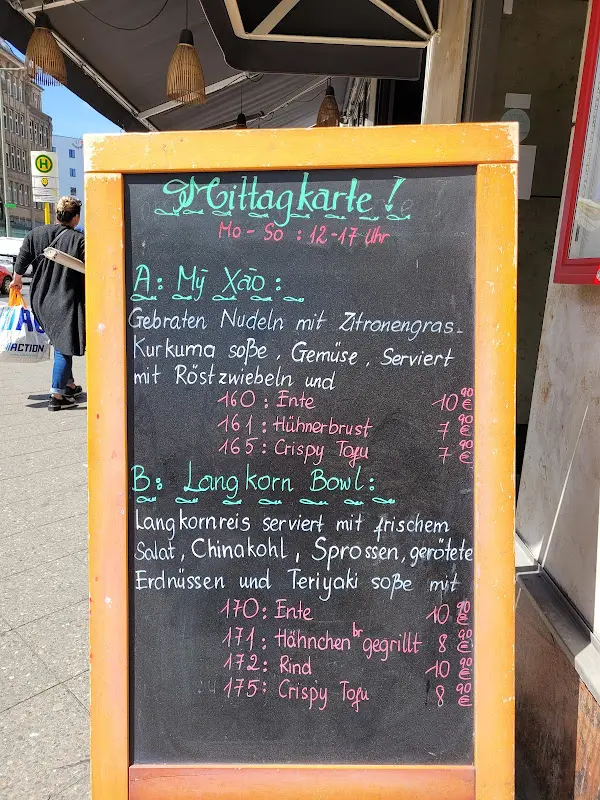 Mittagkarte!
Mo - So : 12-17 Uhr
A: Mỹ Xào :
Gebraten Nudeln mit Zitronengras-
Kurkuma soße, Gemüse, Serviert
mit Röstzwiebeln und
160: Ente 10 90 €
161: Hühnerbrust 7 90 €
165: Crispy Tofu 7 90 €
B: Langkorn Bowl:
Langkornreis serviert mit frischem
Salat, Chinakohl, Sprossen, gerötete
Erdnüssen und Teriyaki soße mit
170: Ente 10 90 €
171: Hähnchen br gegrillt 8 90 €
172: Rind 10 90 €
175: Crispy Tofu 8 90 €
H
ACTION